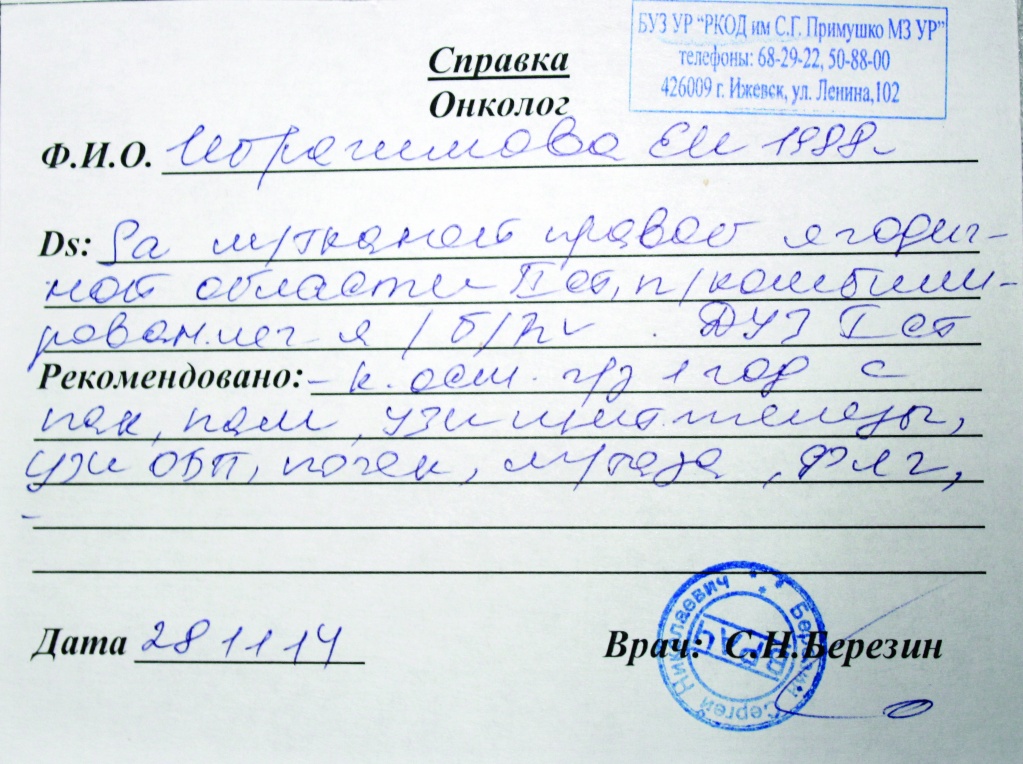 БУЗ УР "РКОД им С.Г. Примушко МЗ УР"
телефоны: 68-29-22, 50-88-00
426009 г. Ижевск, ул. Ленина,102
Справка
Онколог
Ф.И.О. Ибрагимова ЕИ 1988
Ds: мягких тканей правой ягодич-
ной области II ст, п/комбини-
рован. леч-я /б/пр. ДУЗ I ст
Рекомендовано: - к. осм. ч/з 1 год с
оак, оам, узи щит. железы,
узи ОБП, почек, м/таза, ФЛГ,
Дата 28 11 14
Врач: С.Н.Березин
Березин Сергей Николаевич
ВРАЧ